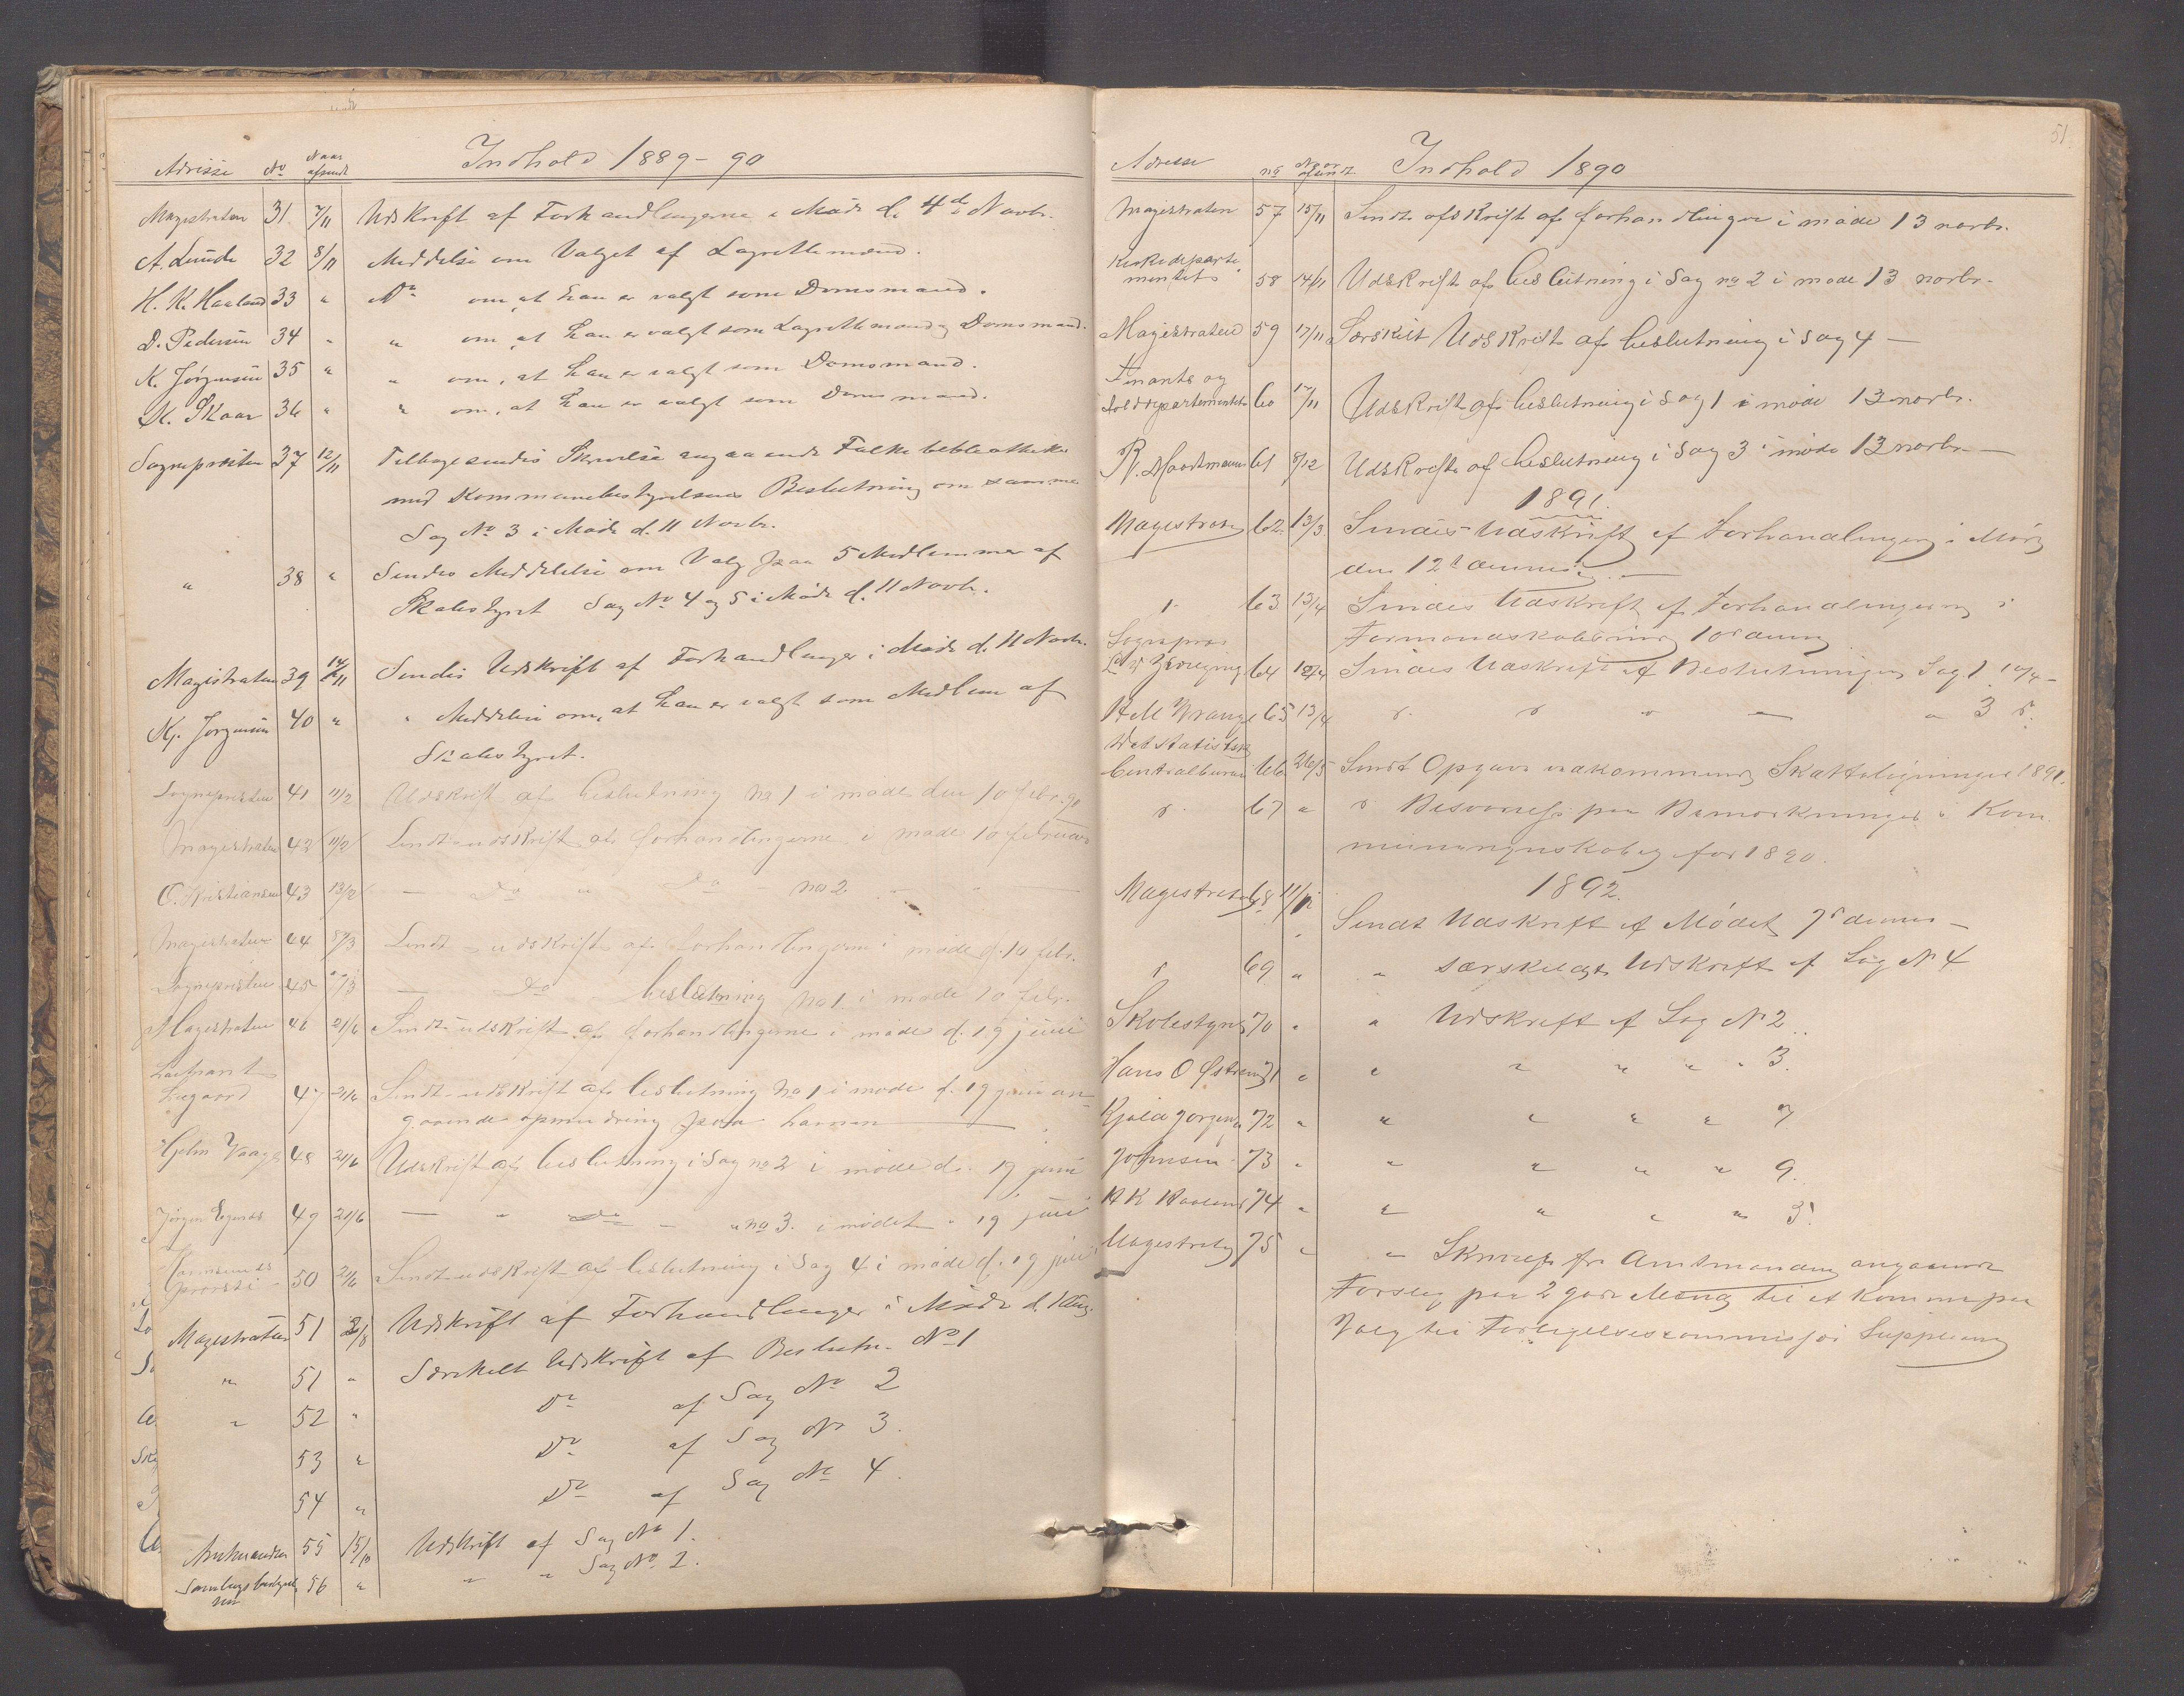 Adresse No Naar afsendt Indhold 1889-90
Magistraten 31. 7/11 Udskrift af Forhandlingerne i Møde d. 4de Novbr.
A. Lunde 32 8/11 Meddelse om Valget af Lagrettemænd.
H. K. Haaland 33 " Do om, at han er valgt som Domsmand.
D. Pedersen 34 " " om at han er valgt som Lagrettemand og Domsmand.
K. Jørgensen 35 " " om, at han er valgt som Domsmand.
K. Skaar 36 " " om, at han er valgt som Domsmand.
Sognepresten 37 12/11 Tilbagesendes Skrivelse angaaende Folkebibliotheket
med Kommunebestyrelsens Beslutning om samme
Sag No 3 i Møde d. 11 Novbr.
" 38 " Sendes Meddelelse om Valg paa 5 Medlemmer af
Skolestyret Sag No 4 og 5 i Møde d. 11 Novbr.
Magistraten 39 14/11 Sendes Udskrift af Forhandlinger i Møde d. 11 Novbr.
Kj. Jørgensen 40 " " Meddelse om, at han er valgt som Medlem af
Skolestyret.
Sognepresten 41 11/2 Udskrift af beslutning No 1 i møde den 10 febr. 90
Magistraten 42 11/2 Sendt udskrift af forhandlingerne i møde 10 februar
O. Kristiansen 43 13/2 — Do " Do no 2 — " —
Magistraten 44 8/3 Sendt udskrift af forhandlingerne i møde d. 10 febr.
Sognepresten 45 — Do beslutning no 1 i møde 10 febr.
Magistraten 46 21/6 Sendt udskrift af forhandlingerne i møde d. 19 juni
47 21/6 Sendt udskrift af beslutning No 1 i møde d. 19 juni an-
gaaende opmudring paa havnen
48 21/6 Udskrift af beslutning i Sag no 2 i møde d. 19 juni
Jørgen 49 21/6 — " Do — " no 3. i mødet " 19 juni
50 21/6 Sendt udskrift af beslutning i Sag 4 i møde d. 19 juni
Magistraten 51 Udskrift af Forhandlinger i Møde d.
" 51 " Særskilt Udskrift af Beslutn. No 1
" 52 " Do af Sag No 2
53 " Do af Sag No 3.
54 " Do af Sag No 4.
Amtmanden 55 15/10 Udskrift af Sag No 1.
Samlagsbestyrel-
sen 56 " " " Sag No. 2.
51
Adresse no Naar afsendt Indhold 1890
Magistraten 57 15/11 Sendt afskrift af forhandlinger i møde 13 novbr.
Kirkedeparte-
mentet 58 14/11 Udskrift af beslutning i Sag no 2 i møde 13 novbr.
Magistraten 59 17/11 Særskilt Udskrift af beslutning i Sag 4 —
Finants og
Tolddepartementet 60 17/11 Udskrift af beslutning i Sag 1 i møde 13 novbr.
R. 61 8/12 Udskrift af beslutning i Sag 3 i møde 13 novbr. —
1891.
Magistraten 62. 13/3 Sendes Udskrift af Forhandlinger i Møde
den 12te dennes. —
" 63 13/4 Sendes Udskrift af Forhandlingerne i
Formandskabet 10de dennes
Sognepræst
64 12/4 Sendes Udskrift af Beslutningen Sag 1. 10/4 -
65 13/4 " " " — " 3 "
Det statistiske
Centralbureau 66 26/5 Sendt Opgave vedkommende Skatteligninger 1891.
" 67 " " Besvarelse paa Bemærkninger i Kom
muneregnskabet for 1890.
1892.
Magistraten 68 Sendt Udskrift af Mødet 7de dennes —
" 69. " " særskilt Udskrift af Sag No 4
Skolestyret 70 " " Udskrift af Sag No 2.
Hans O 71 " " " " " " 3.
Kjeld Jørgens 72 " " " " " 7
Johnsen 73 " " " " " 9.
H K Haaland 74 " " " " " 5.
Magistraten 75 " " Skrivelse fra Amtmanden angaaende
Forslag paa 2 gode Mænd til at komme paa
Valg til Forligelseskommissær Suppleant